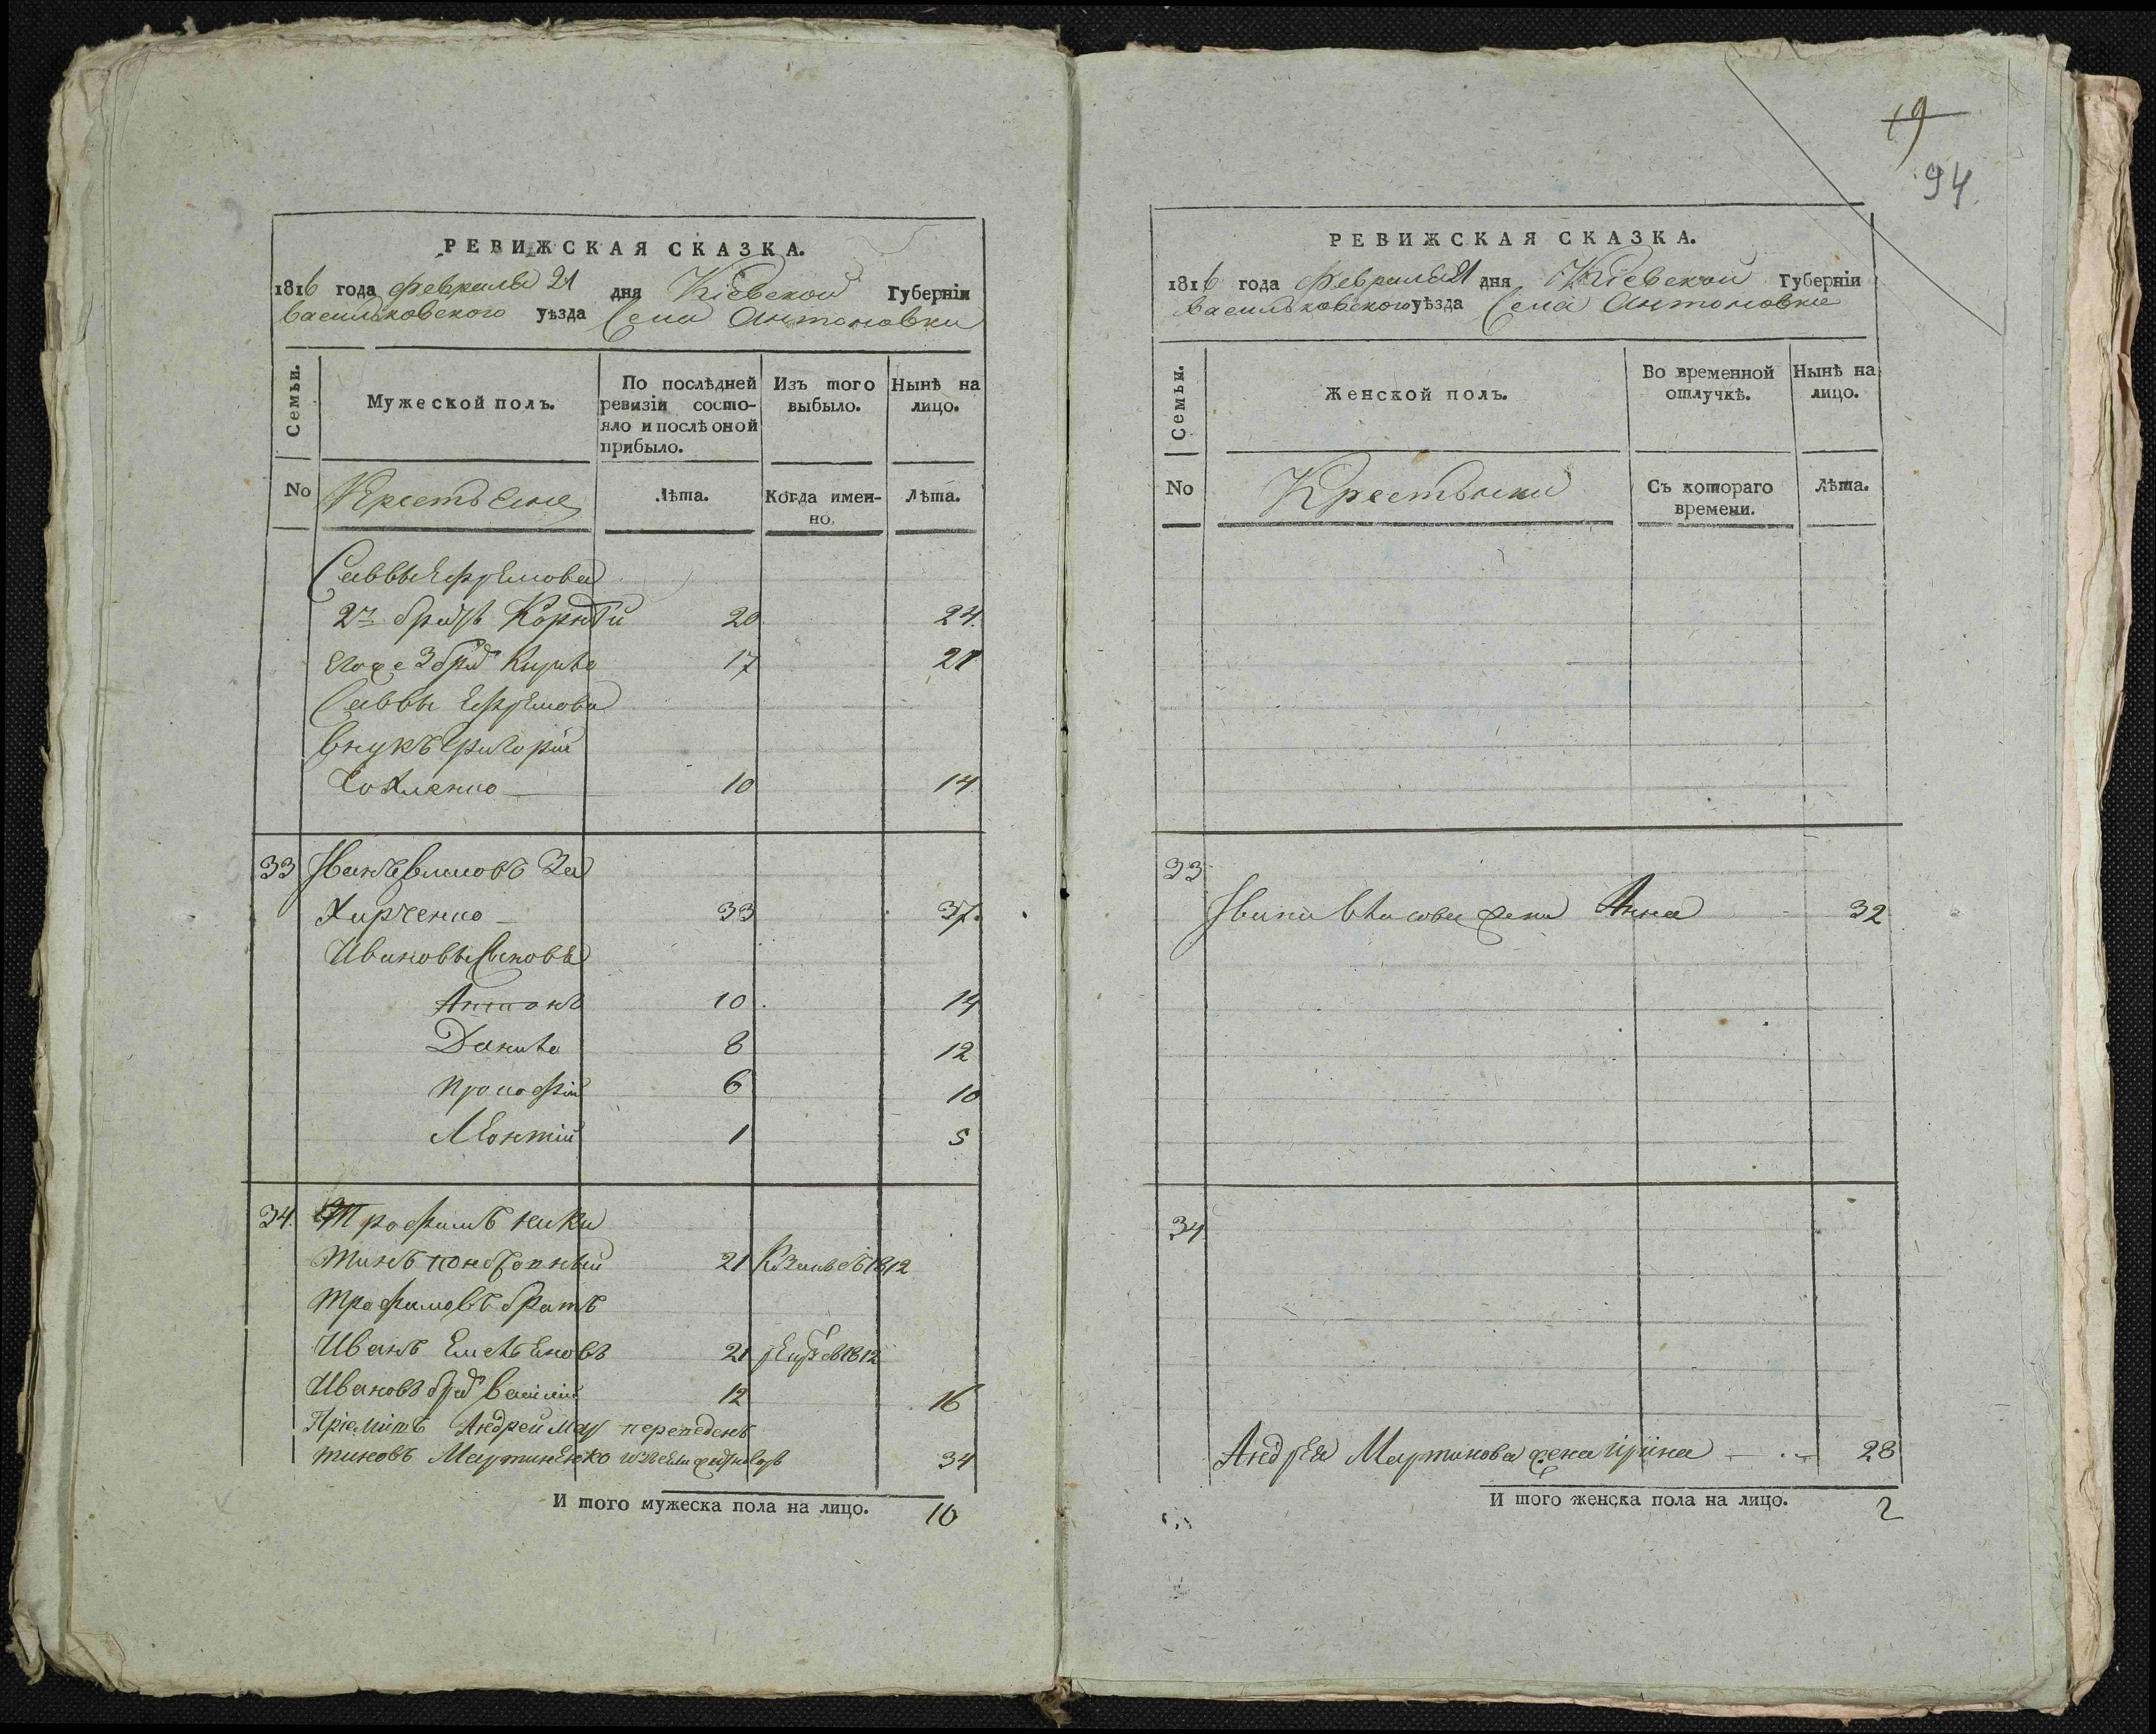 РЕВИЖСКАЯ СКАЗКА.
1816 года февраля 21 дня Кіевской Губерніи
Васильковского уѣзда Села Антоновки
Семьи.
Мужеской полъ.
По послѣдней ревизіи состо-
яло и послѣ оной
прибыло.
Изъ того
выбыло.
Нынѣ на
лицо.
No
Крестьяне
Лѣта.
Когда имен-
но.
Лѣта.
Саввы Ефремова
2й братъ Корнѣй 20 24
его же 3 брат Кирило 17 21
Саввы Ефремова
внукъ Григорій
10 14
33 Иванъ Власовъ За
харченко 33 37.
Ивановы Сыновья
Антонъ 10 14
Данило 8 12
Прокофій 6 10
Леонтій 1 5
34 Трофимъ Ники
тинъ 21 1812
Трофимовъ братъ
Иванъ Емельяновъ 21 рекрут въ 1812
Ивановъ брат Василій 12 16
Пріемышъ Андрей Мар переведенъ
тиновъ Мартиненко 34
И того мужеска пола на лицо. 10
19
94.
РЕВИЖСКАЯ СКАЗКА.
1816 года февраля 21 дня Кіевской Губерніи
Васильковского уѣзда Села Антоновки
Семьи.
Женской полъ.
Во временной
отлучкѣ.
Нынѣ на
лицо.
No
Крестьянки
Съ котораго
времени.
Лѣта.
33
Ивана Власова жена Анна 32
34
Андрея Мартинова жена Ирина 28
И того женска пола на лицо. 2